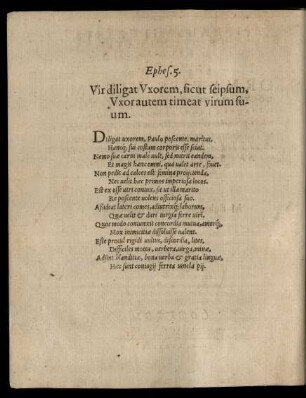 Ephes. 5.
Vir diligat Vxorem, sicut seipsum,
Vxor autem timeat virum su-
um.
Diligat uxorem, Paulo poscente, maritus,
suæ costam corporis esse sciat.
Nemo suæ carni male vult, sed nutrit eandem,
Et magis hanc omni, qua valet arte, fovet.
Non pedis ad calces est fœmina proijcienda,
Nec velit hæc primos imperiosa locos.
Est ex esse viri coniux, sit ut illa marito
Ex poscente volens officiosa suo.
Assideat lateri comes, laborum,
Quæ velit & duri iurgia ferre viri.
Quos modo coniunxit concordia mutua,
Mox inimicitiæ dissoluisse valent.
Este procul rigidi vultus, discordia, lites,
Difficiles motus, verbera, virga, minæ,
Adsint blanditiæ, bona verba & gratia linguæ,
Hæc sunt coniugij ferrea vincla pij.